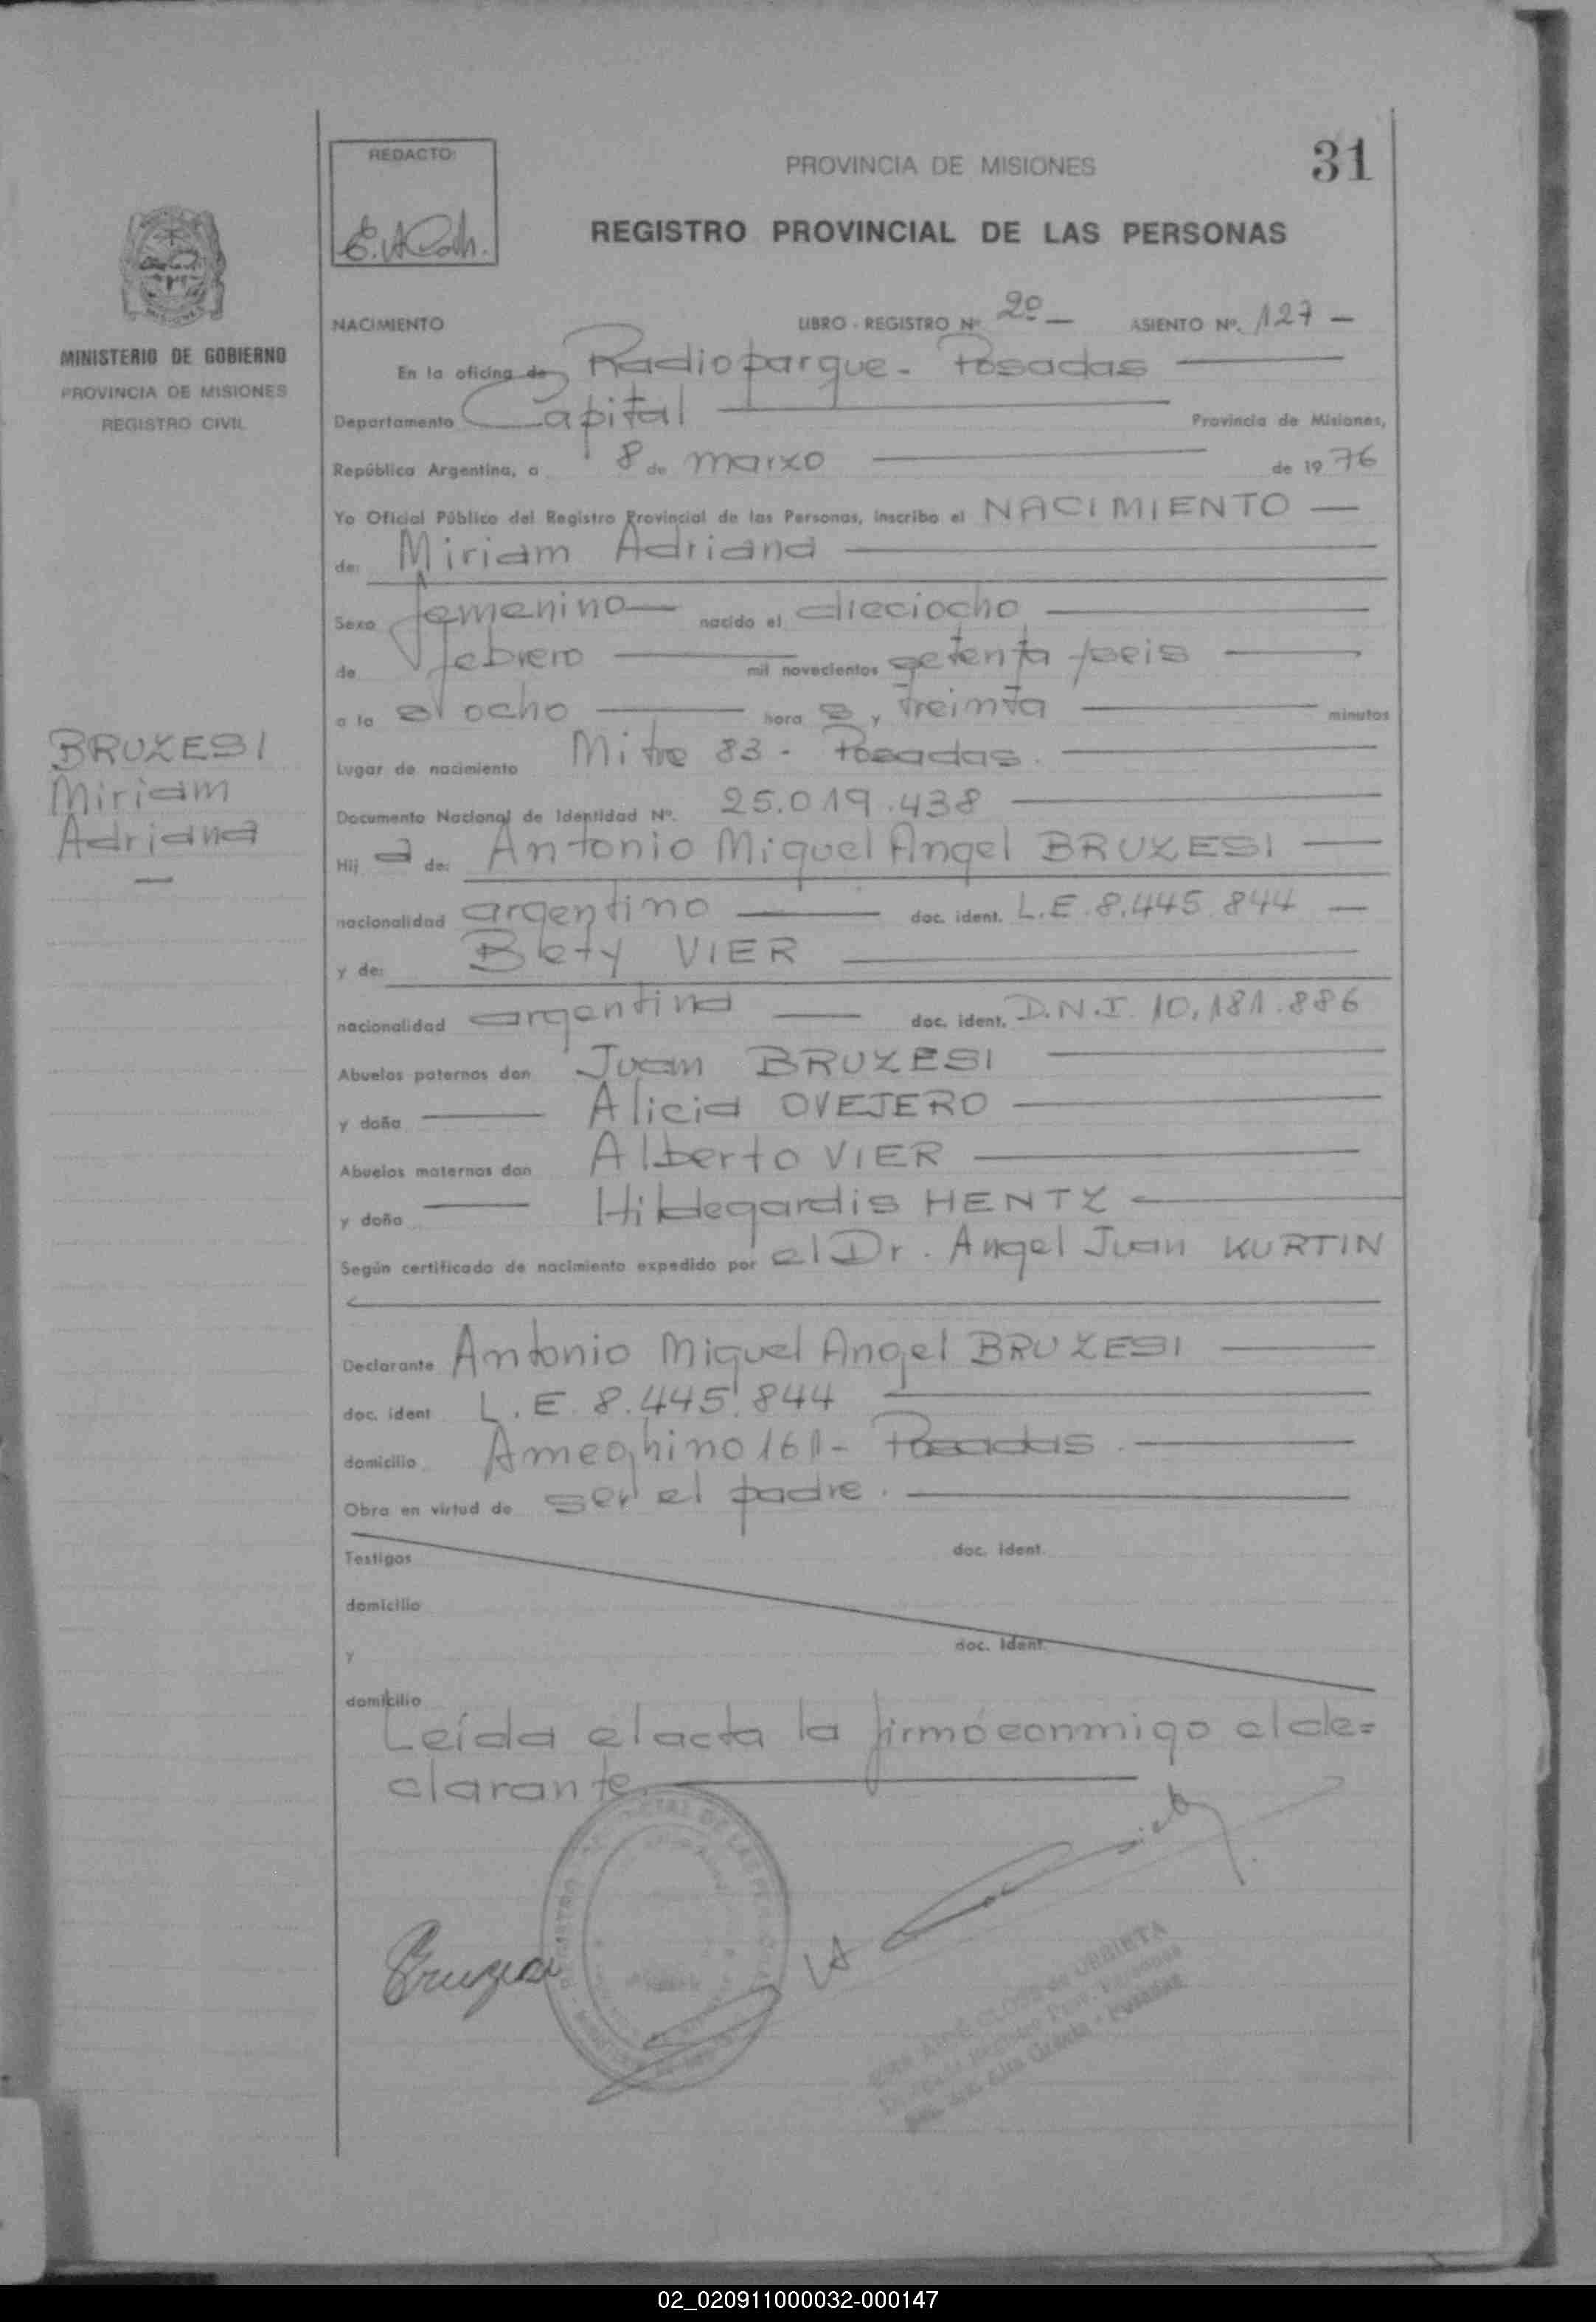 REDACTO:
PROVINCIA DE MISIONES
31
REGISTRO PROVINCIAL DE LAS PERSONAS
NACIMIENTO LIBRO - REGISTRO Nº 2º — ASIENTO Nº. 127 —
MINISTERIO DE GOBIERNO
PROVINCIA DE MISIONES
REGISTRO CIVIL
En la oficina de Radioparque - Posadas
Departamento Capital Provincia de Misiones,
República Argentina, a 8 de marzo de 1976
Yo Oficial Público del Registro Provincial de las Personas, inscribo el NACIMIENTO —
de: Miriam Adriana
Sexo femenino nacido el dieciocho
de febrero mil novecientos setenta y seis
a la s ocho hora s y treinta minutos
BRUZESI
Miriam
Adriana
—
Lugar de nacimiento Mitre 83 - Posadas.
Documento Nacional de Identidad Nº. 25.019.438
Hij a de: Antonio Miguel Angel BRUZESI
nacionalidad argentino doc. ident. L.E. 8.445.844 —
y de: Blety VIER
nacionalidad argentina doc. ident. D.N.I. 10.181.886
Abuelos paternos don Juan BRUZESI
y doña Alicia OVEJERO
Abuelos maternos don Alberto VIER
y doña Hildegardis HENTZ
Según certificado de nacimiento expedido por el Dr. Angel Juan KURTIN
Declarante Antonio Miguel Angel BRUZESI
doc. ident L.E. 8.445.844
domicilio Ameghino 161 - Posadas.
Obra en virtud de ser el padre.
Testigos doc. ident.
domicilio
y doc. ident.
domicilio
Leída el acta la firmó conmigo el de=
clarante.
Bruzesi
02_020911000032-000147